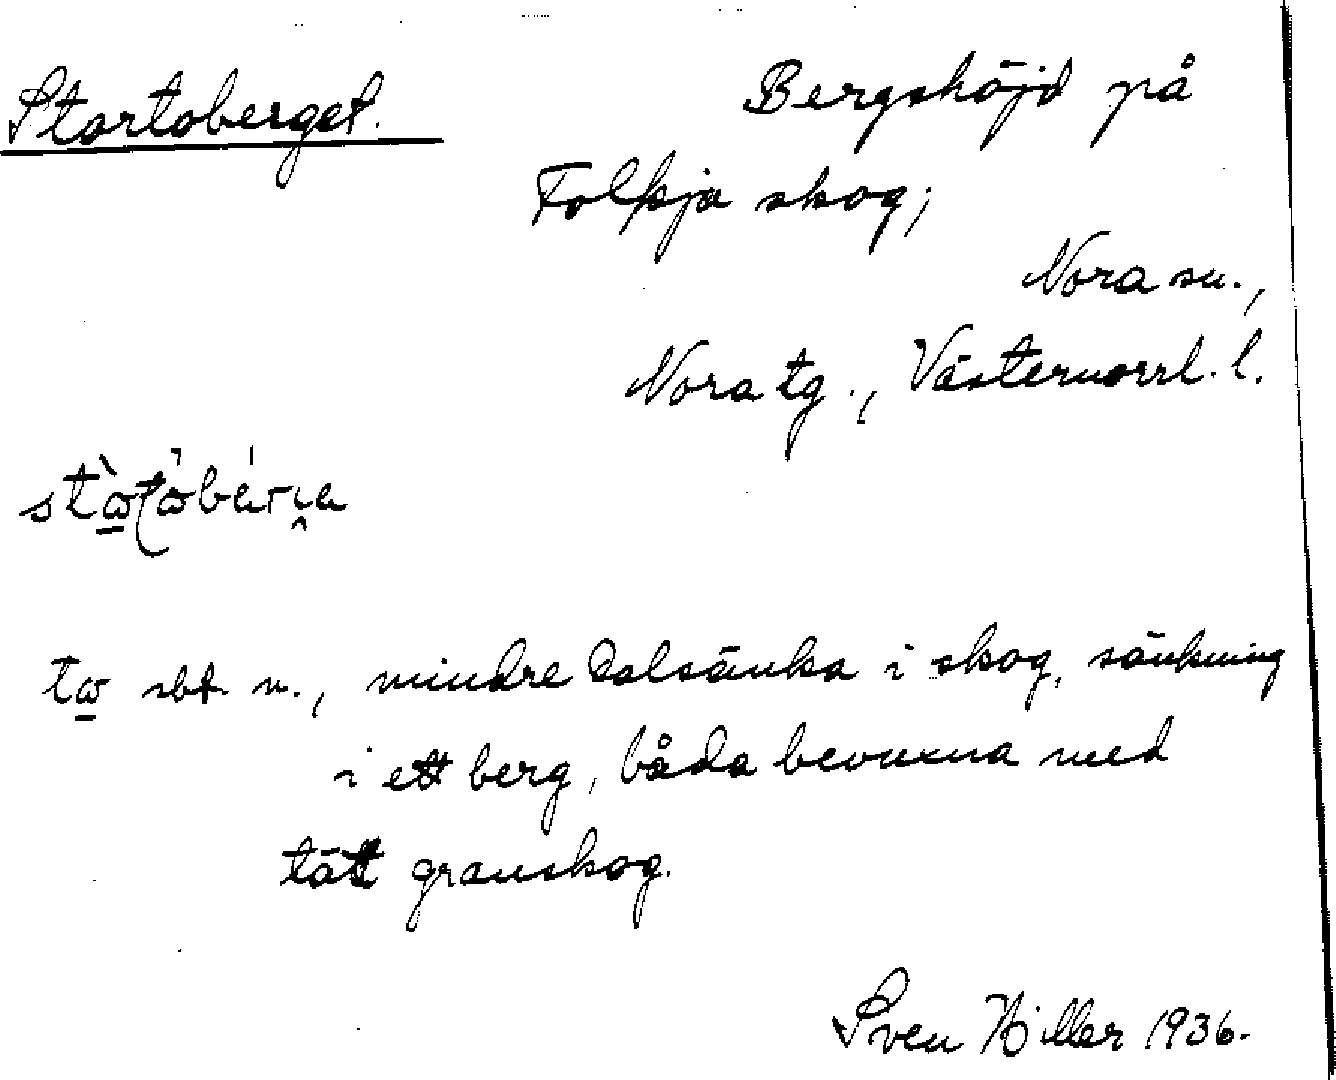 Stortoberget. Bergshöjd på
Folkja skog;
Nora sn.,
Nora tg., Västernorrl. l.
sbt. n., mindre dalsänka i skog, sänkning
i ett berg, båda bevuxna med
tät granskog.
Sven Hiller 1936.